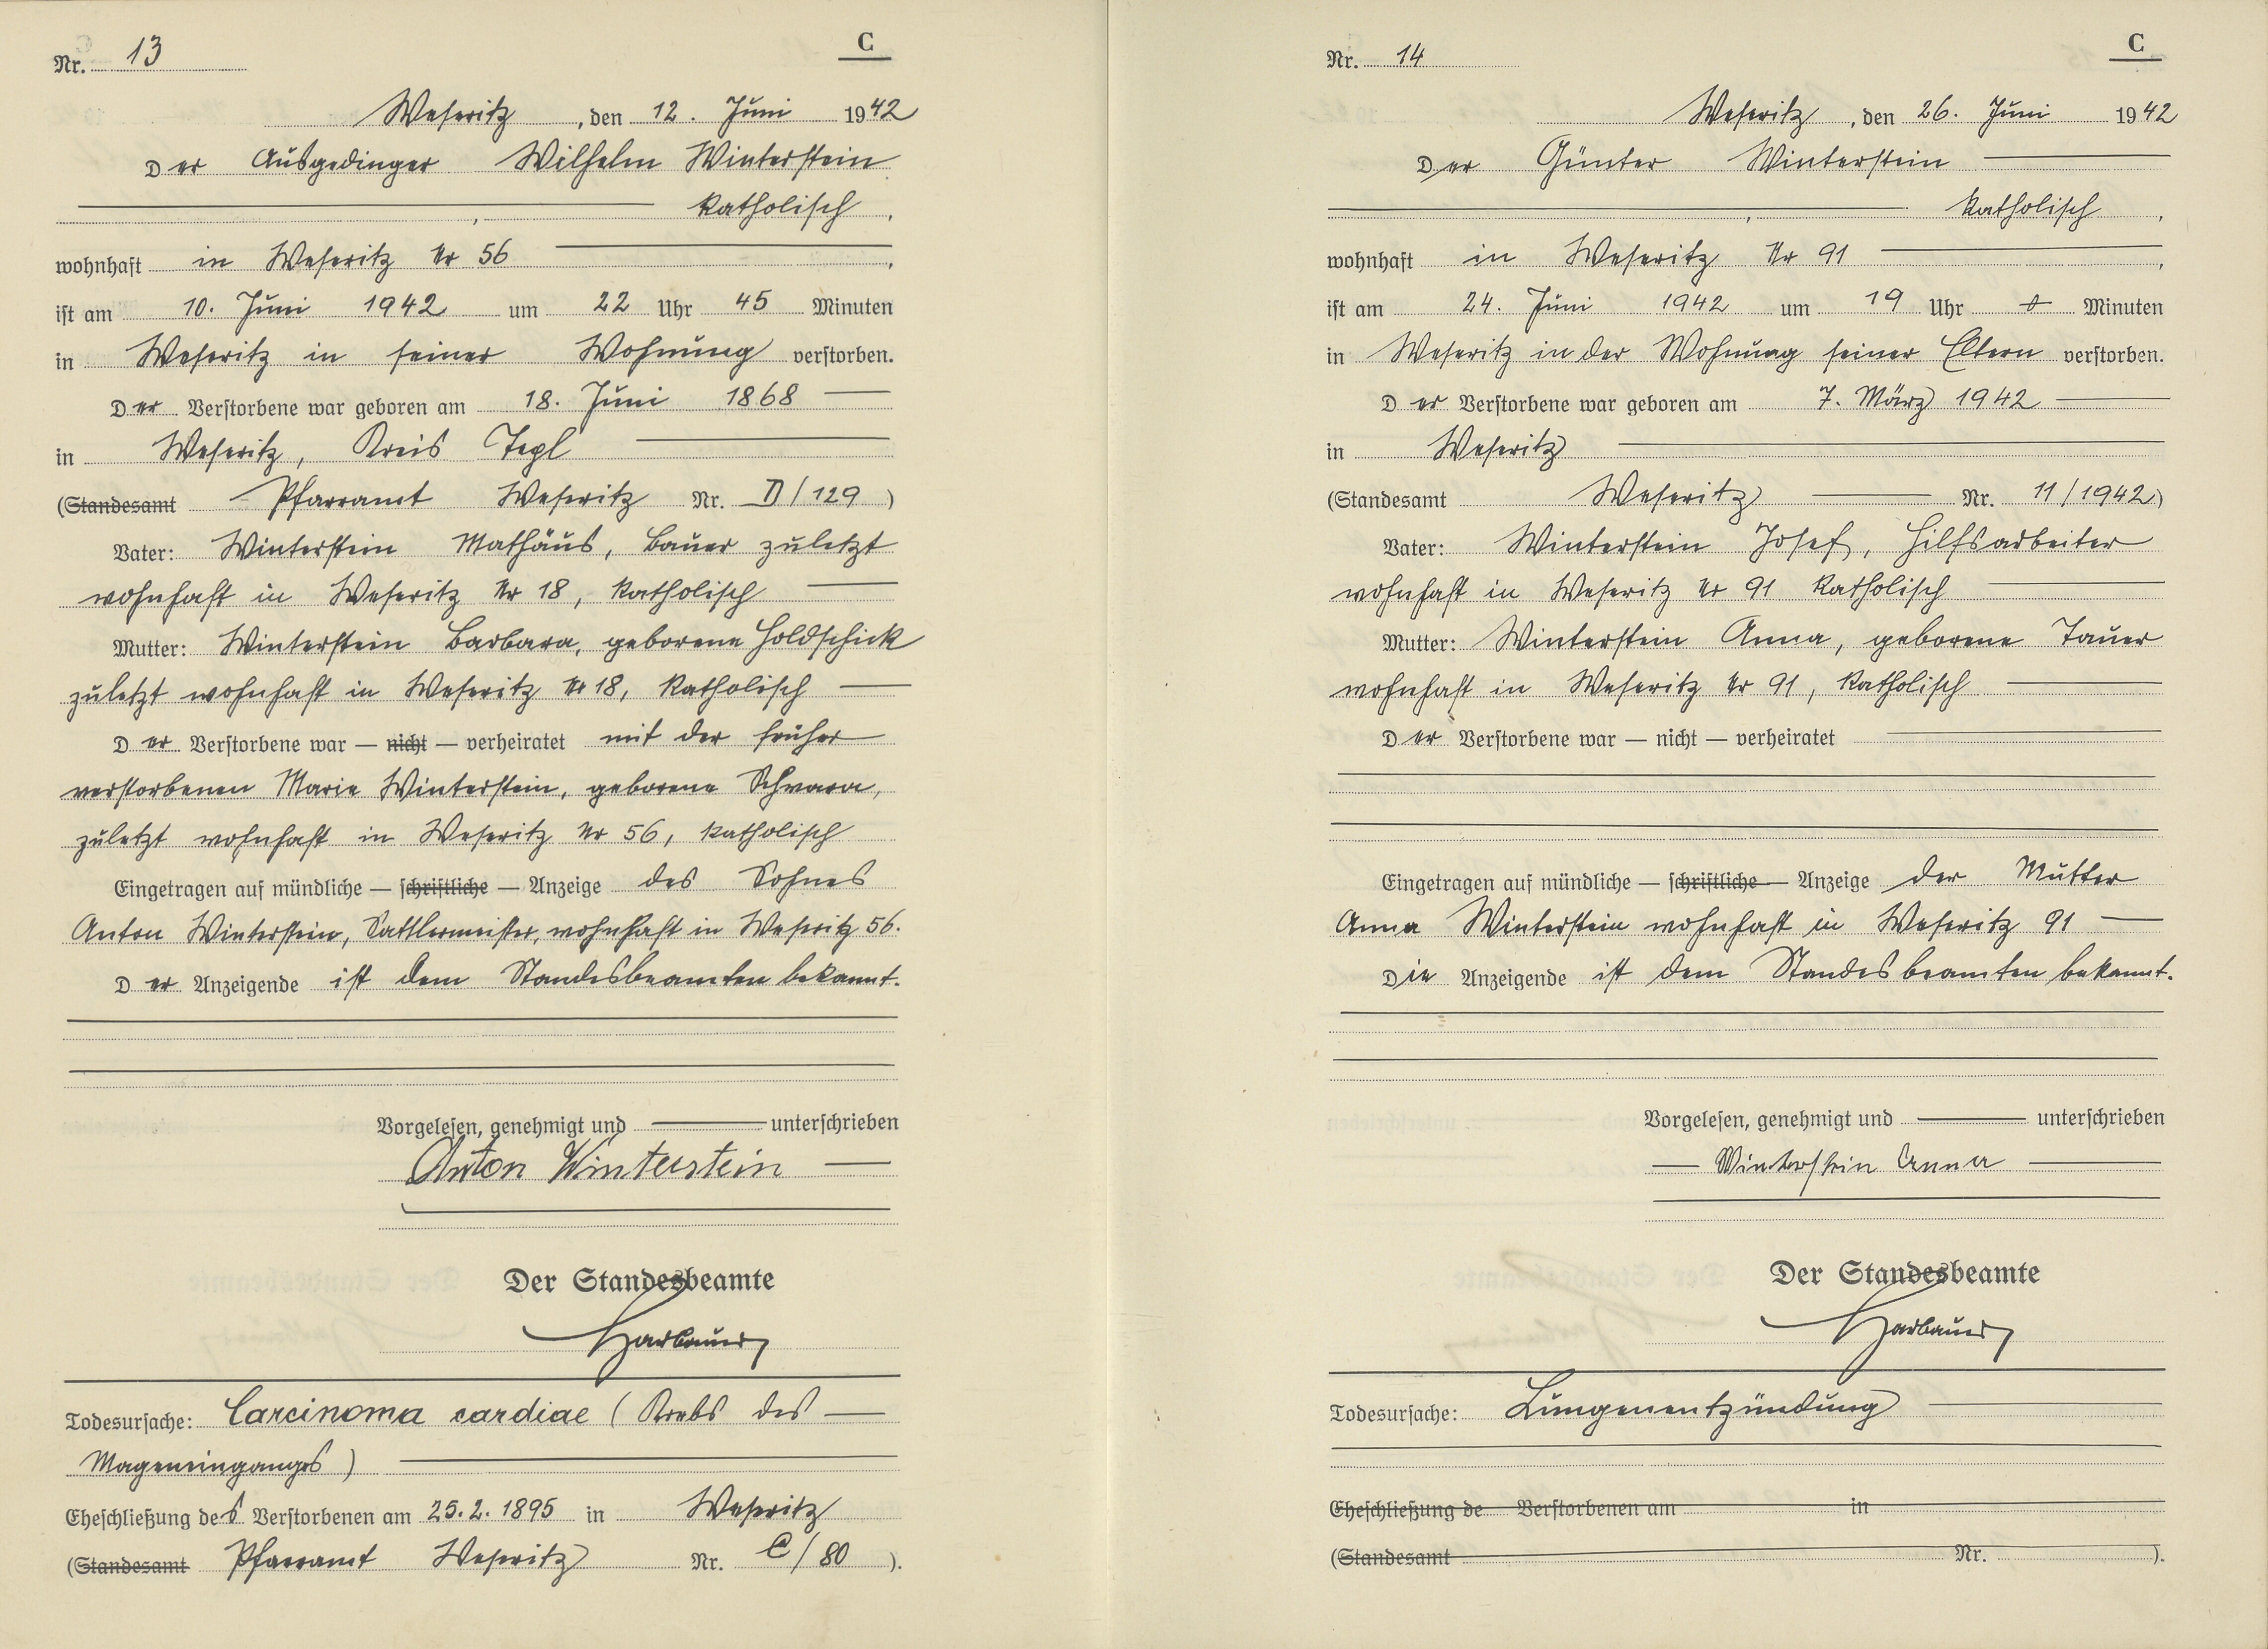 Nr. 13
C
Weseritz, den 12. Juni 1942
Der Ausgedinger Wilhelm Winterstein
, katholisch,
wohnhaft in Weseritz Nr 56,
ist am 10. Juni 1942 um 22 Uhr 45 Minuten
in Weseritz in seiner Wohnung verstorben.
Der Verstorbene war geboren am 18. Juni 1868
in Weseritz, Kreis Tepl
(Standesamt Pfarramt Weseritz Nr. D/129)
Vater: Winterstein Mathäus, Bauer zuletzt
wohnhaft in Weseritz Nr 18, katholisch
Mutter: Winterstein Barbara, geborene Holdschick
zuletzt wohnhaft in Weseritz Nr 18, katholisch
Der Verstorbene war — nicht — verheiratet mit der früher
verstorbenen Marie Winterstein, geborene
zuletzt wohnhaft in Weseritz Nr 56, katholisch
Eingetragen auf mündliche — schriftliche — Anzeige des Sohnes
Anton Winterstein, Sattlermeister, wohnhaft in Weseritz 56.
Der Anzeigende ist dem Standesbeamten bekannt.
Vorgelesen, genehmigt und unterschrieben
Anton Winterstein
Der Standesbeamte
Harbauer
Todesursache: Carcinoma cardiae (Krebs des
Mageneinganges)
Eheschließung des Verstorbenen am 25.2.1895 in Weseritz
(Standesamt Pfarramt Weseritz Nr. C/80).
Nr. 14
C
Weseritz, den 26. Juni 1942
Der Günter Winterstein
, katholisch,
wohnhaft in Weseritz Nr 91,
ist am 24. Juni 1942 um 19 Uhr Minuten
in Weseritz in der Wohnung seiner Eltern verstorben.
Der Verstorbene war geboren am 7. März 1942
in Weseritz
(Standesamt Weseritz Nr. 11/1942)
Vater: Winterstein Josef, Hilfsarbeiter
wohnhaft in Weseritz Nr 91 katholisch
Mutter: Winterstein Anna, geborene Tauer
wohnhaft in Weseritz Nr 91, katholisch
Der Verstorbene war — nicht — verheiratet
Eingetragen auf mündliche — schriftliche — Anzeige der Mutter
Anna Winterstein wohnhaft in Weseritz 91
Die Anzeigende ist dem Standesbeamten bekannt.
Vorgelesen, genehmigt und unterschrieben
Winterstein Anna
Der Standesbeamte
Harbauer
Todesursache: Lungenentzündung
Eheschließung de Verstorbenen am in
(Standesamt Nr. ).